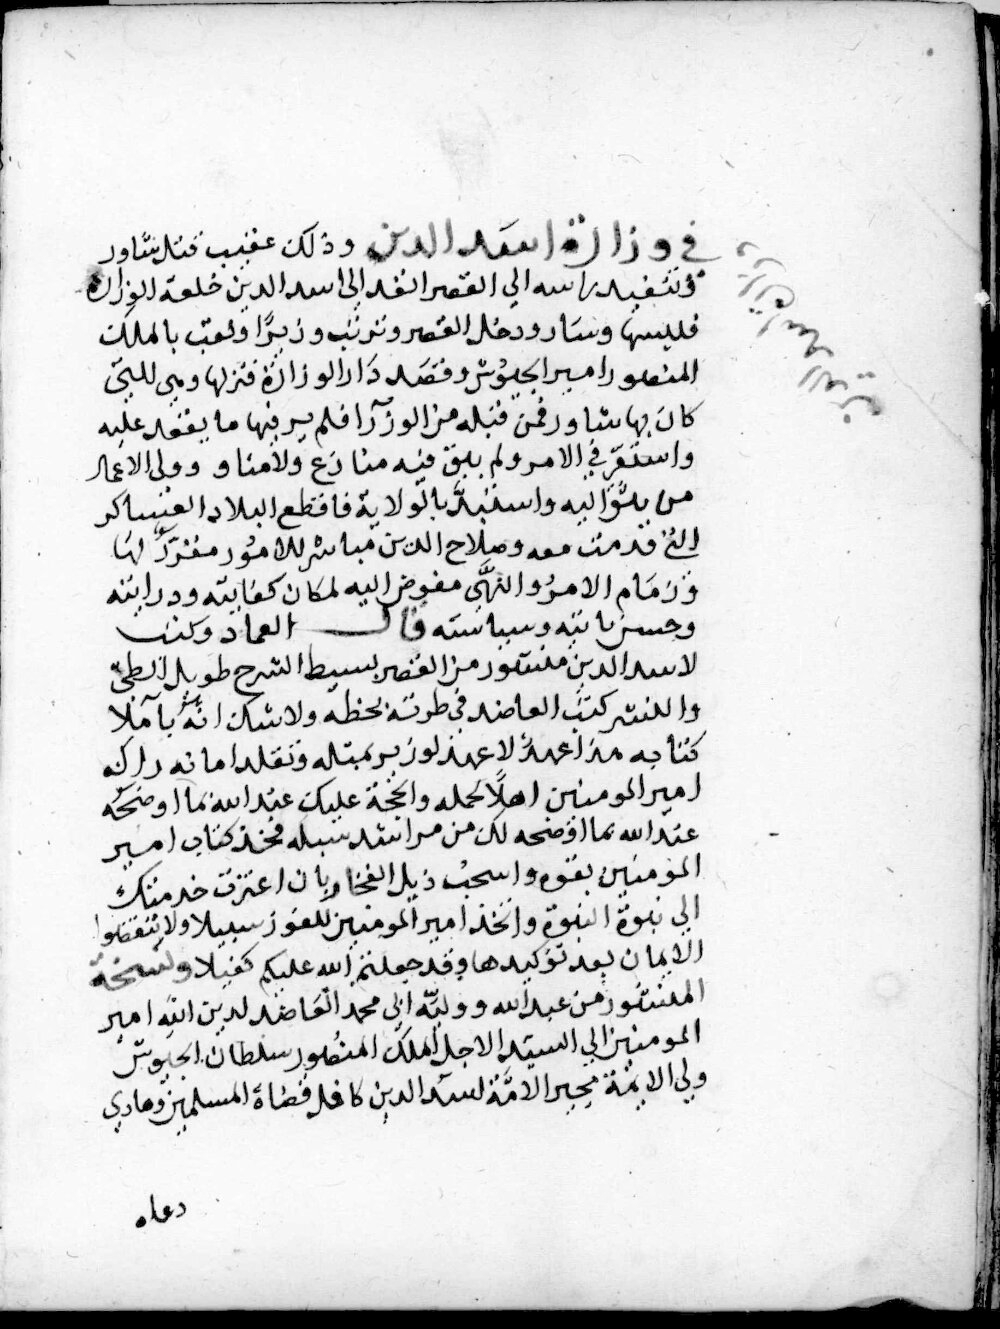 في وزارة اسد الدين وذلك عقيب قتل شاور
وتنفيد راسه الي القصر انفد الي اسد الدين خلعة الوزارة
فلبسها وسار ودخل القصر وترتب وزيرا ولقب بالملك
المنصور امير الجيوش وقصد دار الوزارة فنزلها وهي اللتي
كان بها شاور فمن قبله من الوزرآ فلم ير فيها ما يقعد عليه
واستقر في الامر ولم يبق فيه منازع ولا مناو وولي الاعمال
من يثق اليه واستبد بالولاية فاقطع البلاد العساكر
التي قدمت معه وصلاح الدين مباشر للامور مقرر لها
وزمام الامر والنهي مفوض اليه لمكان كفايته ودرايته
وحسن رايه وسياسته قال العماد وكتب
لاسد الدين منشور من القصر بسيط الشرح طويل الطي
والنشر كتب العاضد في طرته بخطه ولا شك انه بآملا
كتابه هذا عهد لا عهد لوزير بمثله وتقلد امانه راك
امير المومنين اهلا لحمله والحجة عليك عند الله بما اوضحه
عند الله بما اوضحه لك من مراشد سبله فخذ كتاب امير
المومنين بقوه واسحب ذيل الفخار بان اعتزت خدمتك
الي نبوة النبوة واتخذ امير المومنين للفوز سبيلا ولا تنقضوا
الايمان بعد توكيدها وقد جعلتم الله عليكم كفيلا ونسخة
المنشور من عبد الله ووليه ابي محمد العاضد لدين الله امير
المومنين الي السيد الاجل الملك المنصور سلطان الجيوش
ولي الايمة مجير الامة اسد الدين كافل قضاة المسلمين وهادي
دعاه